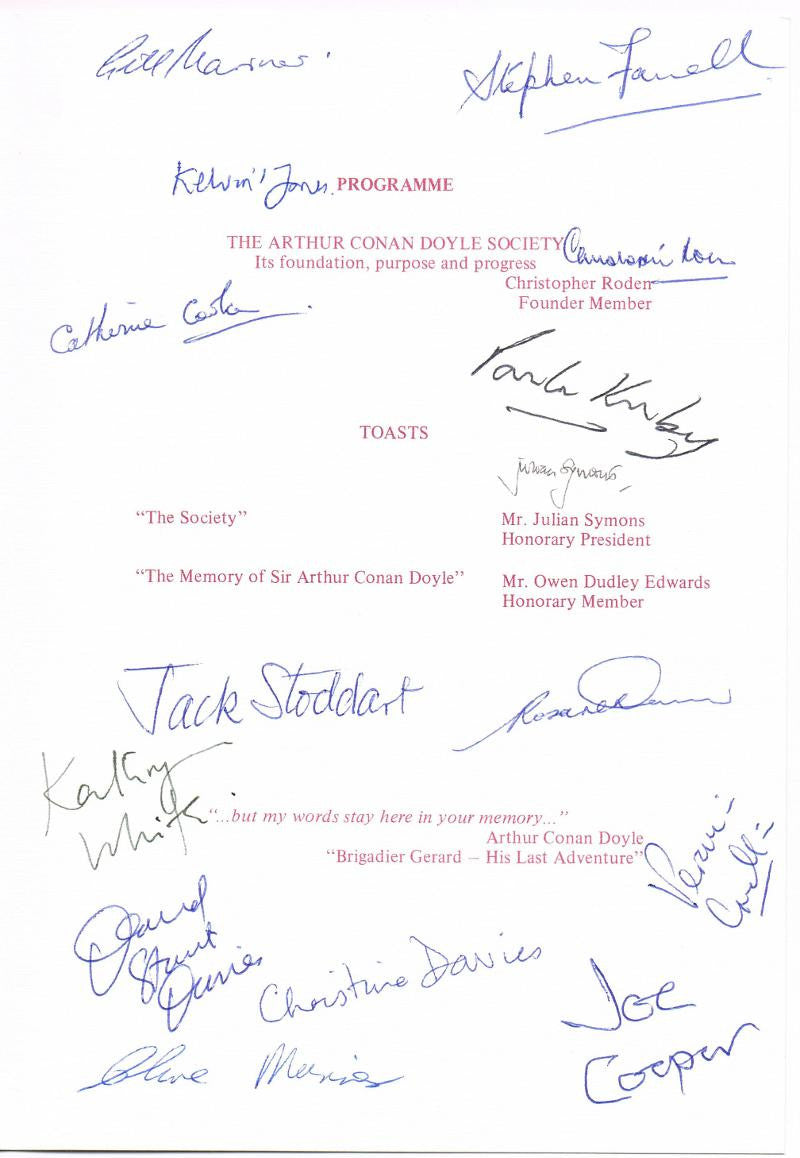 Stephen Farrell
Kelvin Jones
PROGRAMME
THE ARTHUR CONAN DOYLE SOCIETY
Its foundation, purpose and progress
Christopher Roden
Christopher Roden
Founder Member
Catherine Cooke
Paula Kirby
TOASTS
Julian Symons
“The Society”
Mr. Julian Symons
Honorary President
“The Memory of Sir Arthur Conan Doyle”
Mr. Owen Dudley Edwards
Honorary Member
Jack Stoddart
Kathry
White
“...but my words stay here in your memory...”
Arthur Conan Doyle
“Brigadier Gerard – His Last Adventure”
David
Stuart
Davies
Christine Davies
Joe
Cooper